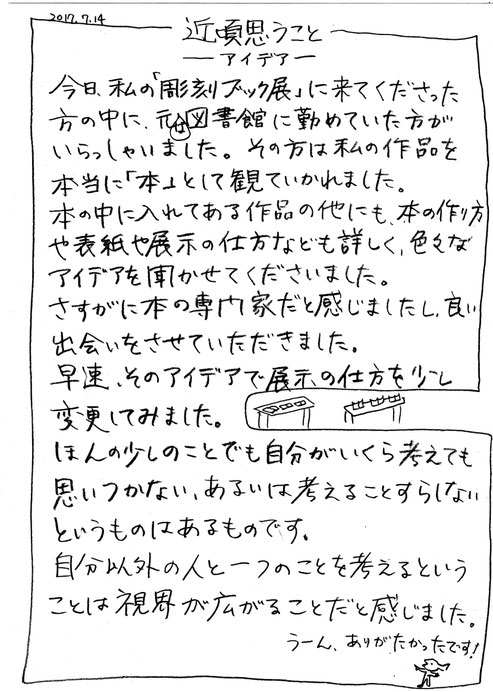 2017.7.14
近頃思うこと
―アイデア―
今日、私の「彫刻ブック展」に来てくださった
方の中に、元図書館に勤めていた方が
いらっしゃいました。その方は私の作品を
本当に「本」として観ていかれました。
本の中に入れてある作品の他にも、本の作り方
や表紙や展示の仕方なども詳しく、色々な
アイデアを聞かせてくださいました。
さすがに本の専門家だと感じましたし、良い
出会いをさせていただきました。
早速、そのアイデアで展示の仕方を少し
変更してみました。
ほんの少しのことでも自分がいくら考えても
思いつかない、あるいは考えることすらしない
というものはあるものです。
自分以外の人と一つのことを考えるという
ことは視界が広がることだと感じました。
うーん、ありがたかったです!